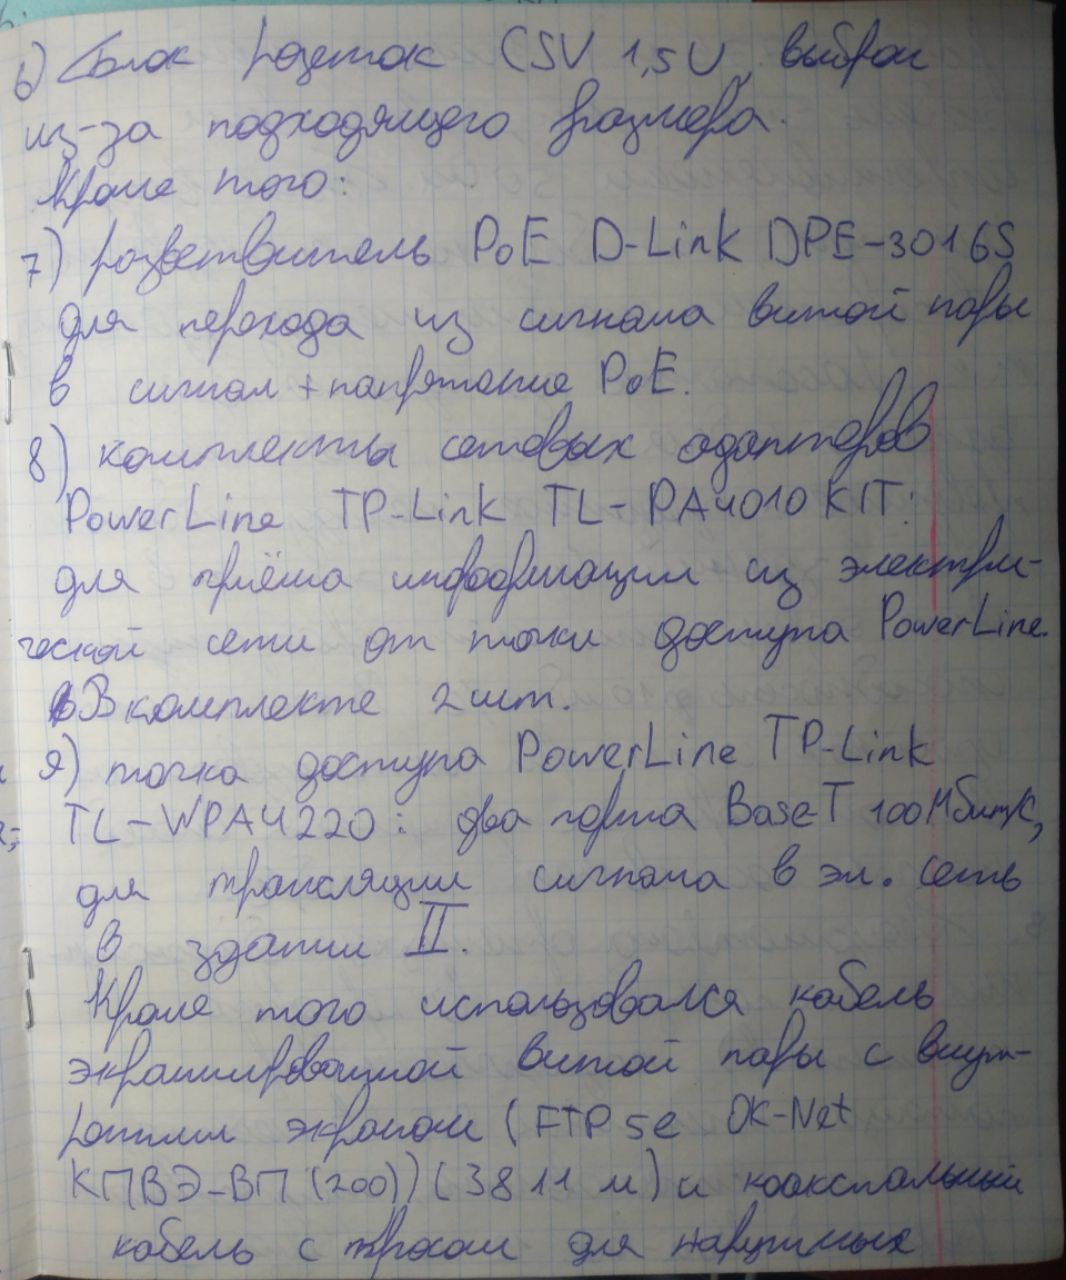 6) Блок розеток CSV 1,5U, выбран
из-за подходящего размера.
Кроме того:
7) разветвитель PoE D-Link DPE-301GS
для перехода из сигнала витой пары
в сигнал + напряжение PoE.
8) комплекты сетевых адаптеров
PowerLine TP-Link TL-PA4010KIT:
для приёма информации из электри-
ческой сети от точки доступа PowerLine.
В комплекте 2 шт.
9) точка доступа PowerLine TP-Link
TL-WPA4220: два порта Base-T 100Мбит/с,
для трансляции сигнала в эл. сеть
в здании II.
Кроме того использовался кабель
экранированной витой пары с внут-
ренним экраном (FTP 5e OK-Net
КПВЭ-ВП (200)) (3811 м) и коаксиальный
кабель с тросом для наружных